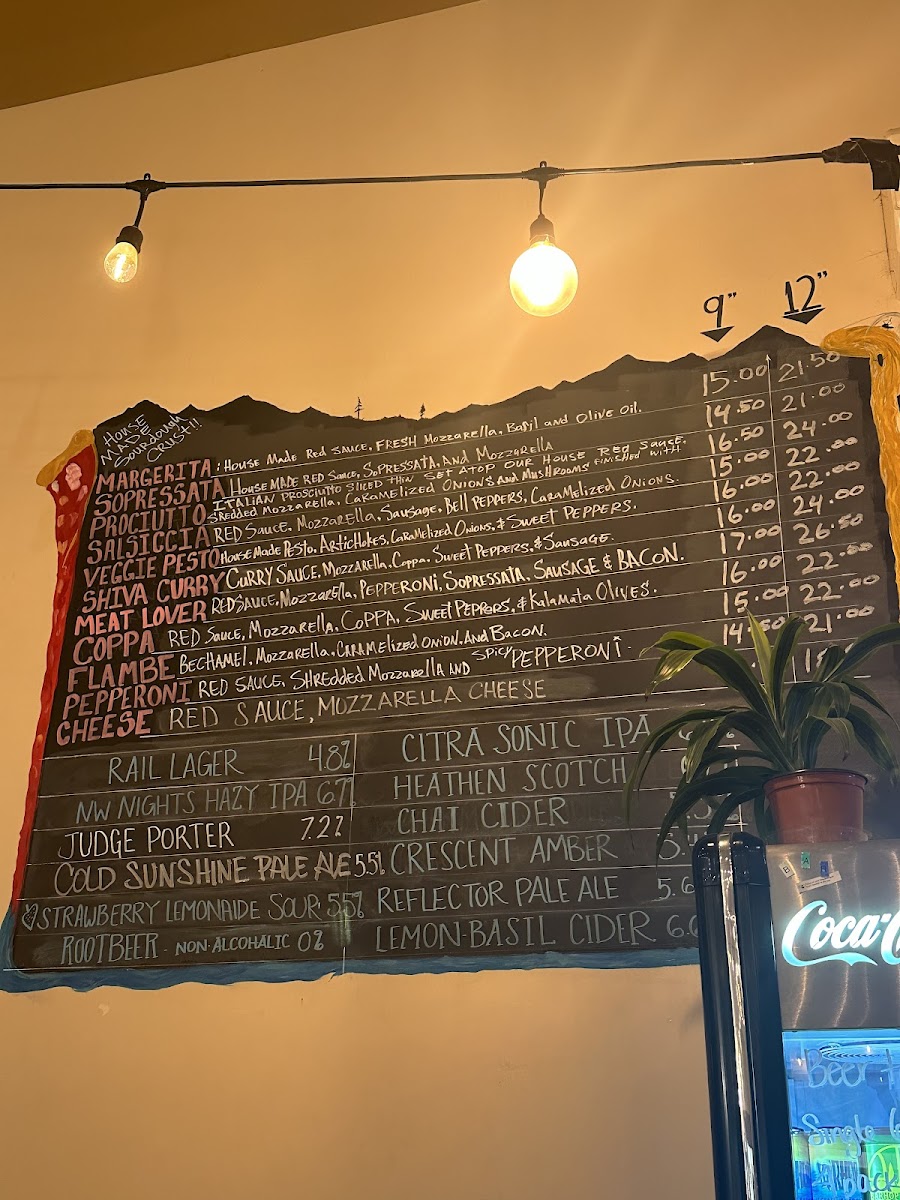 9" 12"
HOUSE
MADE
Sourdough
CRUST!!
MARGERITA: House Made Red Sauce, FRESH Mozzarella, Basil and Olive Oil. 15.00 21.50
SOPRESSATA House MADE RED Sauce, SOPRESSATA, AND Mozzarella 14.50 21.00
PROCIUTTO ITALIAN PROSCIUTTO SLICED THIN SET ATOP OUR HOUSE RED SAUCE. 16.50 24.00
SHREDDED MOZZARELLA, CARAMELIZED ONIONS AND MUSHROOMS FINISHED WITH
SALSICCIA RED SAUCE, MOZZARELLA, SAUSAGE, BELL PEPPERS, CARAMELIZED ONIONS. 15.00 22.00
VEGGIE PESTO House Made Pesto, Artichokes, Caramelized Onions, & Sweet Peppers. 16.00 22.00
SHIVA CURRY CURRY SAUCE, Mozzarella, Coppa, Sweet Peppers, & Sausage. 16.00 24.00
MEAT LOVER RED SAUCE, Mozzarella, PEPPERONI, SOPRESSATA, SAUSAGE & BACON. 17.00 26.50
COPPA RED SAUCE, MOZZARELLA, COPPA, SWEET PEPPERS, & Kalamata OLIVES. 16.00 22.00
FLAMBE BECHAMEL, Mozzarella, CARAMELIZED ONION, And BACON. 15.00 22.00
PEPPERONI RED SAUCE, SHREDDED MOZZARELLA AND SPICY PEPPERONI 14.50 21.00
CHEESE RED SAUCE, MOZZARELLA CHEESE
RAIL LAGER 4.8% CITRA SONIC IPA
NW NIGHTS HAZY IPA 6.7% HEATHEN SCOTCH
JUDGE PORTER 7.2% CHAI CIDER
COLD SUNSHINE PALE ALE 5.5% CRESCENT AMBER
STRAWBERRY LEMONAIDE SOUR 5.5% REFLECTOR PALE ALE 5.6
ROOTBEER - NON-ALCOHALIC 0% LEMON-BASIL CIDER
Coca-C
Beer
Single